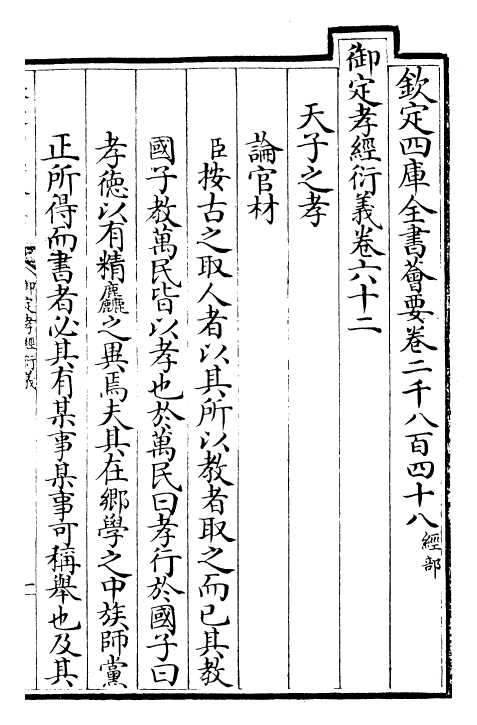 欽定四庫全書薈要卷二千八百四十八經部
御定孝經衍義卷六十二
天子之孝
論官材
臣按古之取人者以其所以教者取之而已其教
國子教萬民皆以孝也於萬民曰孝行於國子曰
孝德以有精麤之異焉夫其在鄉學之中族師黨
正所得而書者必其有某事某事可稱舉也及其
御定孝經衍義